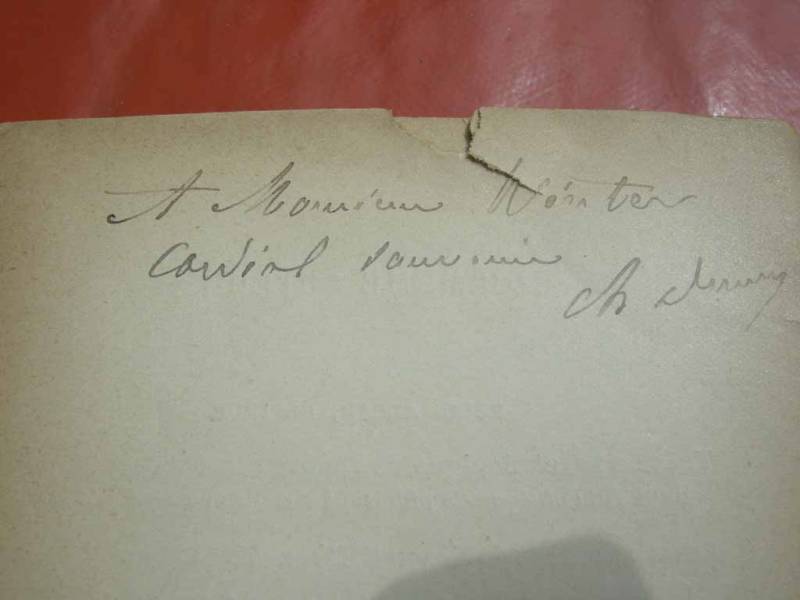 A Monsieur Winter
Cordial souvenir
Ch